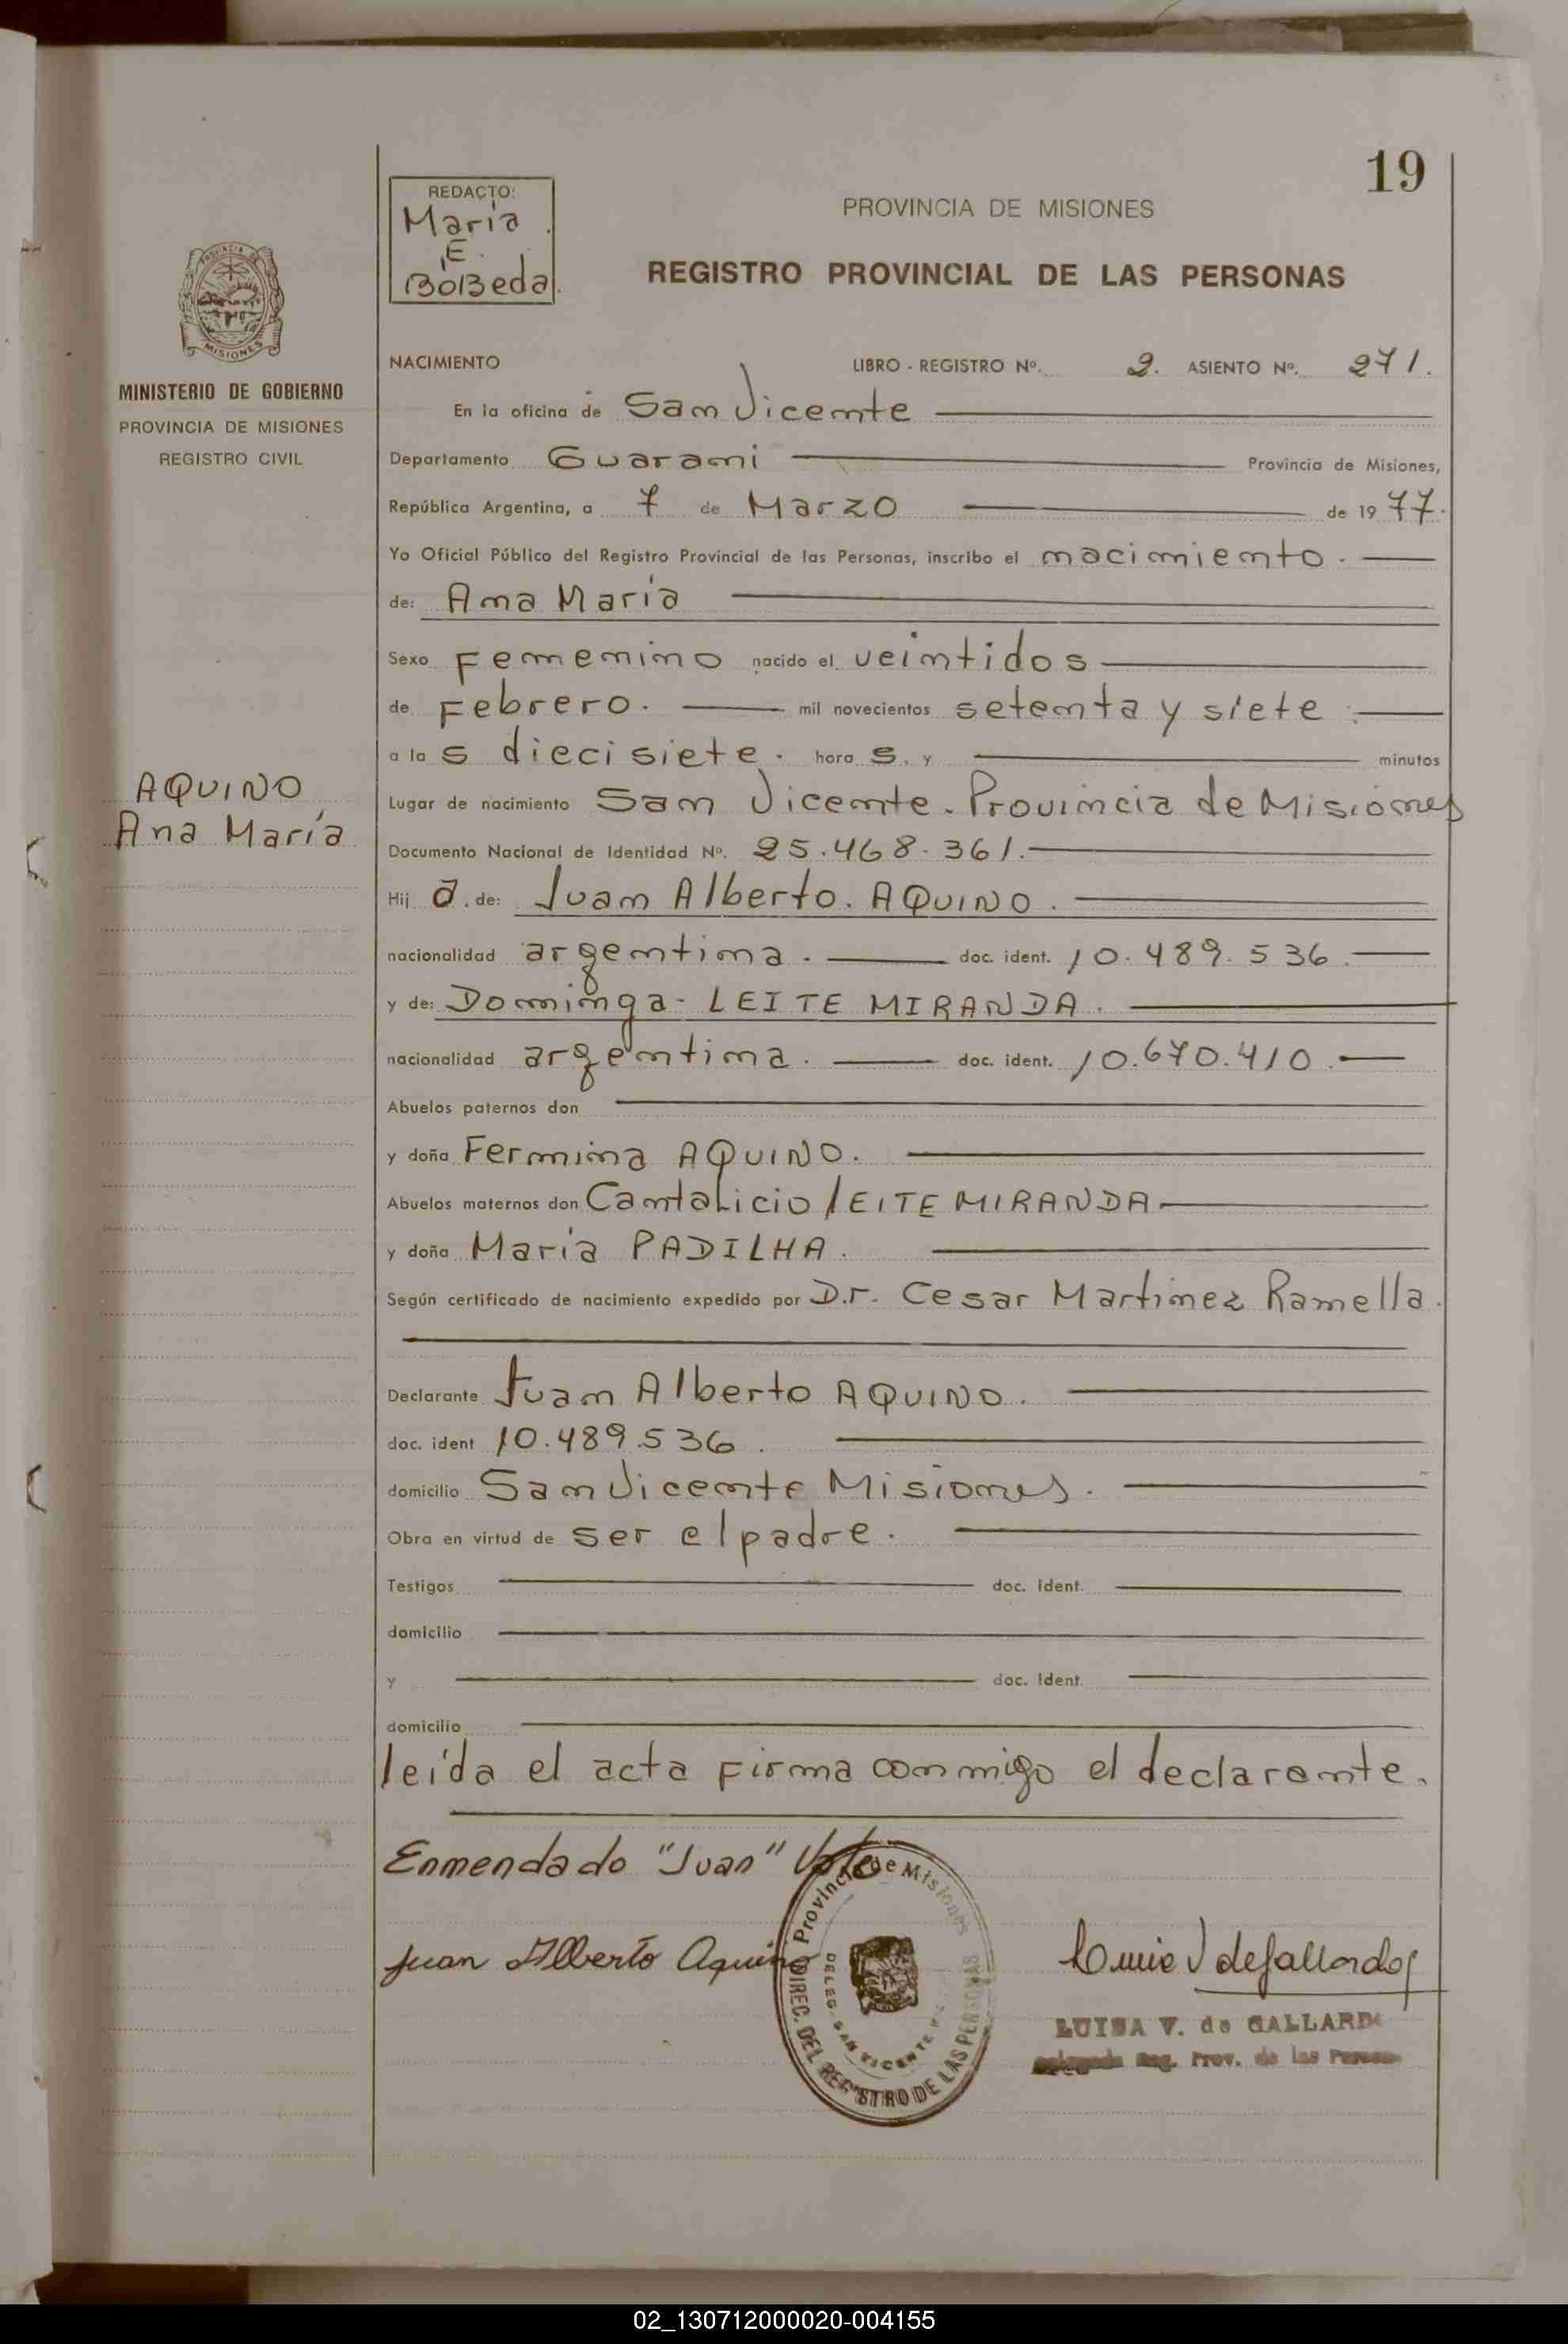 19
REDACTO:
María
E.
BOBeda.
PROVINCIA DE MISIONES
REGISTRO PROVINCIAL DE LAS PERSONAS
PROVINCIA DE
MISIONES
MINISTERIO DE GOBIERNO
PROVINCIA DE MISIONES
REGISTRO CIVIL
NACIMIENTO LIBRO - REGISTRO Nº. 2. ASIENTO Nº. 271.
En la oficina de San Vicente
Departamento Guarani Provincia de Misiones,
República Argentina, a 7 de Marzo de 1977.
Yo Oficial Público del Registro Provincial de las Personas, inscribo el nacimiento.
de: Ana María
Sexo Femenino nacido el veintidos
de Febrero. mil novecientos setenta y siete.
a las diecisiete. horas. y minutos
AQUINO
Ana María
Lugar de nacimiento San Vicente. Provincia de Misiones
Documento Nacional de Identidad Nº. 25.468.361.
Hija. de: Juan Alberto. AQUINO.
nacionalidad argentina. doc. ident. 10.489.536.
y de: Dominga- LEITE MIRANDA.
nacionalidad argentina. doc. ident. 10.670.410.
Abuelos paternos don
y doña Fermina AQUINO.
Abuelos maternos don Cantalicio LEITE MIRANDA
y doña María PADILHA.
Según certificado de nacimiento expedido por D.r. Cesar Martinez Ramella.
Declarante Juan Alberto AQUINO.
doc. ident 10.489.536.
domicilio San Vicente Misiones.
Obra en virtud de ser el padre.
Testigos doc. ident.
domicilio
y doc. ident.
domicilio
leída el acta firma conmigo el declarante.
Enmendado "Juan" Vale
Juan Alberto Aquino
Provincia de Misiones
DIREC. DEL REGISTRO DE LAS PERSONAS
DELEG. SAN VICENTE
LUISA V. de GALLARDO
Reg. Prov. de las Person
02_130712000020-004155